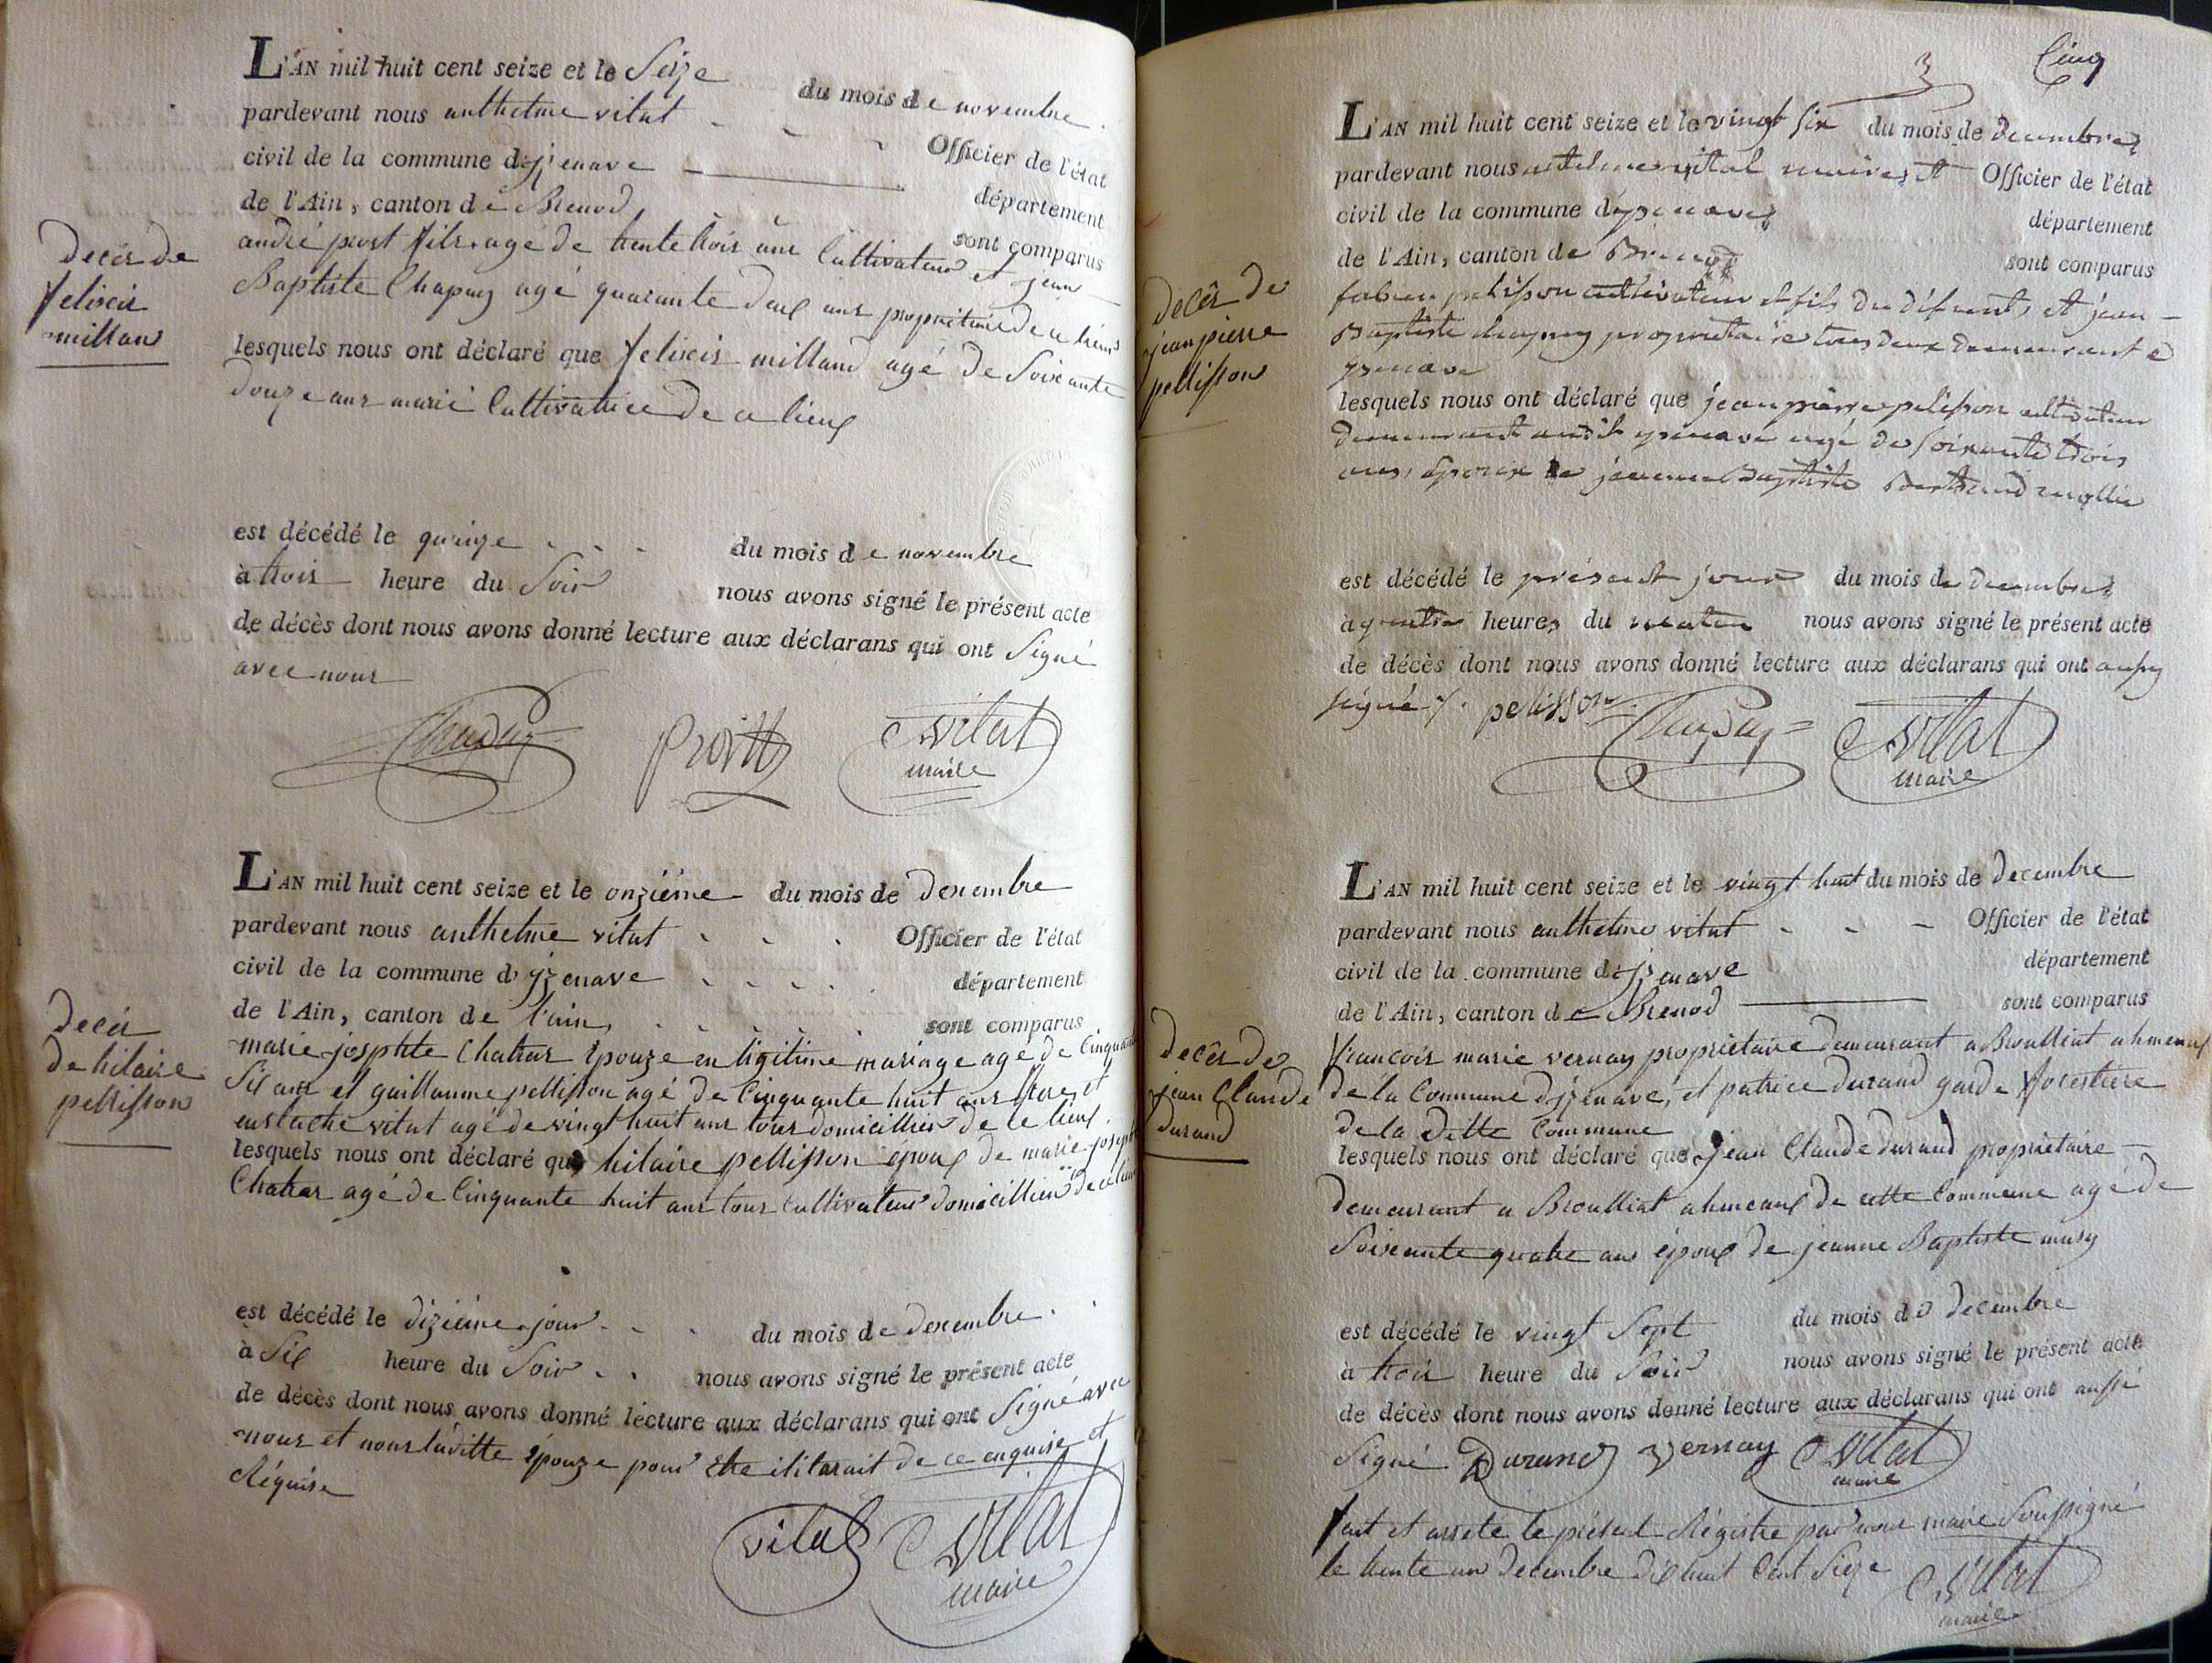 L'AN mil huit cent seize et le Seize du mois de novembre
pardevant nous anthelme vitat Officier de l'état
civil de la commune dyzenave département
de l'Ain, canton de Brenod sont comparus
andré prost fils agé de trente trois ans Cultivateur et jean
Baptiste Chapuy agé quarante deux ans proprietaire de ce lieux
decès de
felicis
millan
lesquels nous ont déclaré que felicis milland agé de Soixante
douze ans marié Cultivatrice de ce lieux
est décédé le quinze du mois de novembre
à trois heure du Soir nous avons signé le présent acte
de décès dont nous avons donné lecture aux déclarans qui ont Signé
avec nous
Chapuy prost vitat
maire
L'AN mil huit cent seize et le onziéme du mois de decembre
pardevant nous anthelme vitat Officier de l'état
civil de la commune dyzenave département
de l'Ain, canton de l'ain sont comparus
decés
de hilaire
pellisson
marie josephte Chatrar épouze en ligitime mariage agé de Cinquante
Six ans et guillaume pellisson agé de Cinquante huit ans frere et
eustache vitat agé de vingt huit ans tous domicillier de ce lieux
lesquels nous ont déclaré que hilaire pellisson époux de marie josephte
Chatrar agé de Cinquante huit ans tous Cultivateur domicillier de ce lieux
est décédé le dizieme jour du mois de decembre
à Six heure du Soir nous avons signé le présent acte
de décès dont nous avons donné lecture aux déclarans qui ont Signé avec
nous et non laditte épouze pour être ilitarait de ce enquise et
Réquise
vitat vitat
maire
3 Cinq
L'AN mil huit cent seize et le vingt six du mois de decembre
pardevant nous antelme vital maire et Officier de l'état
civil de la commune dyzenave département
de l'Ain, canton de Brenod sont comparus
decès de
jean pierre
pellisson
fabien pelisson cultivateur et fils du défunt, et jean
Baptiste chapuy proprietaire tous deux demeurant a
yzenave
lesquels nous ont déclaré que jean pierre pelisson cultivateur
demeurant audit yzenave agé de soixante trois
ans, époux de jeanne Baptiste Bertrand mollie
est décédé le présent jour du mois de decembre
à quatre heures du matin nous avons signé le présent acte
de décès dont nous avons donné lecture aux déclarans qui ont aussy
signé pelisson Chapuy vitat
maire
L'AN mil huit cent seize et le vingt huit du mois de decembre
pardevant nous anthelme vitat Officier de l'état
civil de la commune dyzenave département
de l'Ain, canton de Brenod sont comparus
decès de
jean Claude
durand
francois marie vernay proprietaire demeurant a Broulliat ahmeaux
de la Commune dyzenave, et patrice durand garde forestiere
de la ditte Commune
lesquels nous ont déclaré que jean Claude durand proprietaire
demeurant a Broulliat ahmeaux de cette Commune agé de
Soixante quatre ans époux de jeanne Baptiste musy
est décédé le vingt Sept du mois de decembre
à trois heure du Soir nous avons signé le présent acte
de décès dont nous avons donné lecture aux déclarans qui ont aussi
Signé Durand vernay vitat
maire
fait et arrete le présent Régistre par nous maire Soussigné
le trente un decembre dix huit Cent Sieze vitat
maire